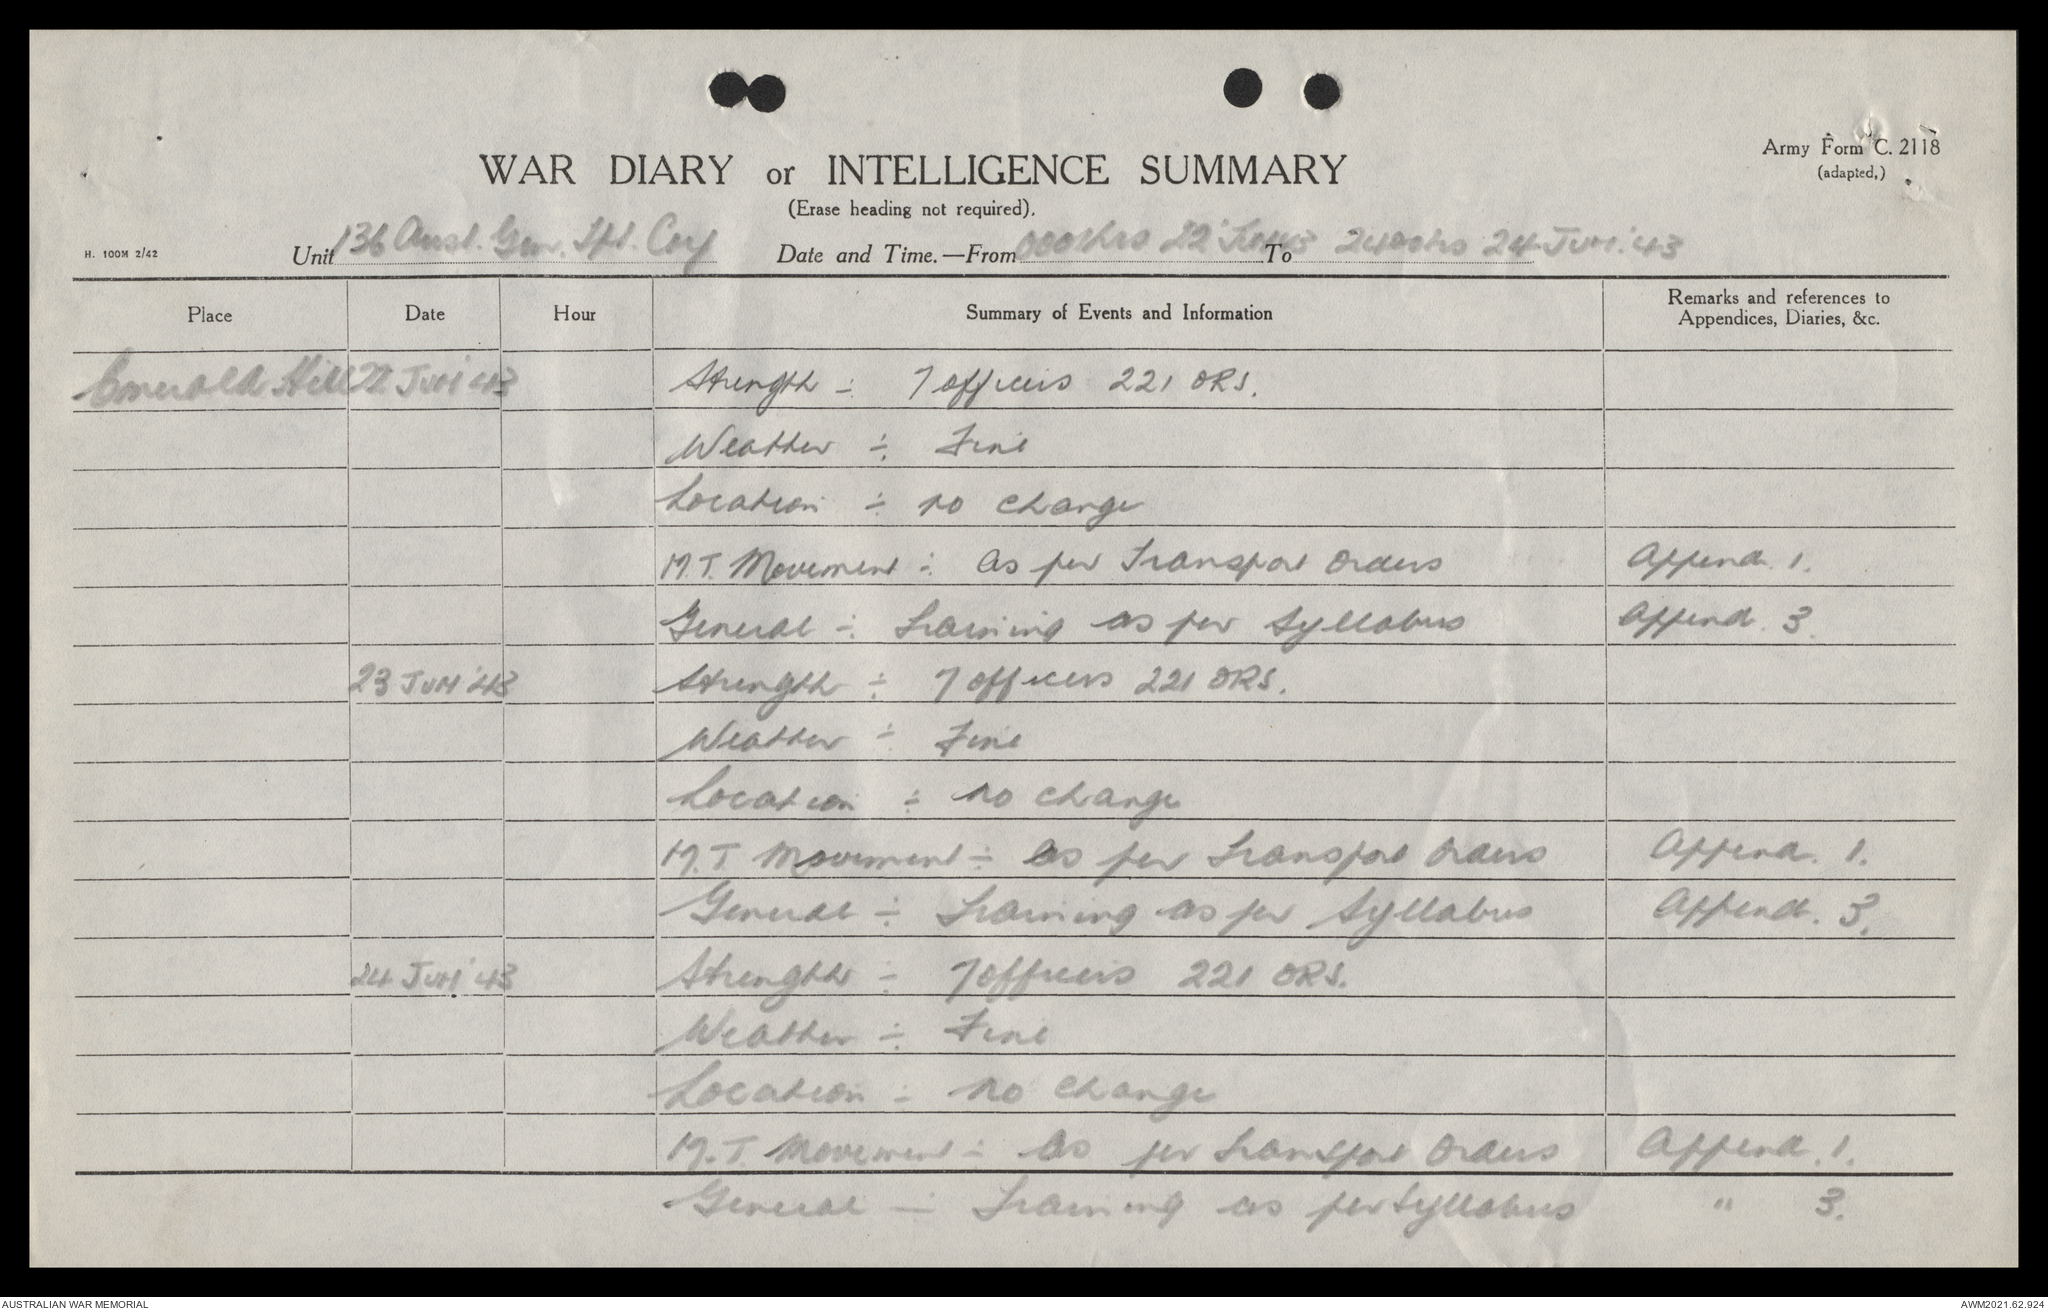 Army Form C. 2118
(adapted,)
WAR DIARY or INTELLIGENCE SUMMARY
(Erase heading not required).
H. 100M 2/42
Unit 136 Aust. Gen. Tpt. Coy Date and Time.—From 0001hrs 22 Jun '43 To 2400hrs 24 Jun '43
Place Date Hour Summary of Events and Information Remarks and references to Appendices, Diaries, &c.
Emerald Hill 22 Jun '43 Strength :- 7 officers 221 ORS.
Weather :- Fine
Location :- no change
M.T. Movement :- As per Transport Orders Append. 1.
General :- Training as per Syllabus Append. 3.
23 Jun '43 Strength :- 7 officers 221 ORS.
Weather :- Fine
Location :- no change
M.T. Movement :- As per Transport Orders Append. 1.
General :- Training as per Syllabus Append. 3.
24 Jun '43 Strength :- 7 officers 221 ORS.
Weather :- Fine
Location :- no change
M.T. Movement :- As per Transport Orders Append. 1.
General :- Training as per Syllabus " 3.
AUSTRALIAN WAR MEMORIAL
AWM2021.62.924